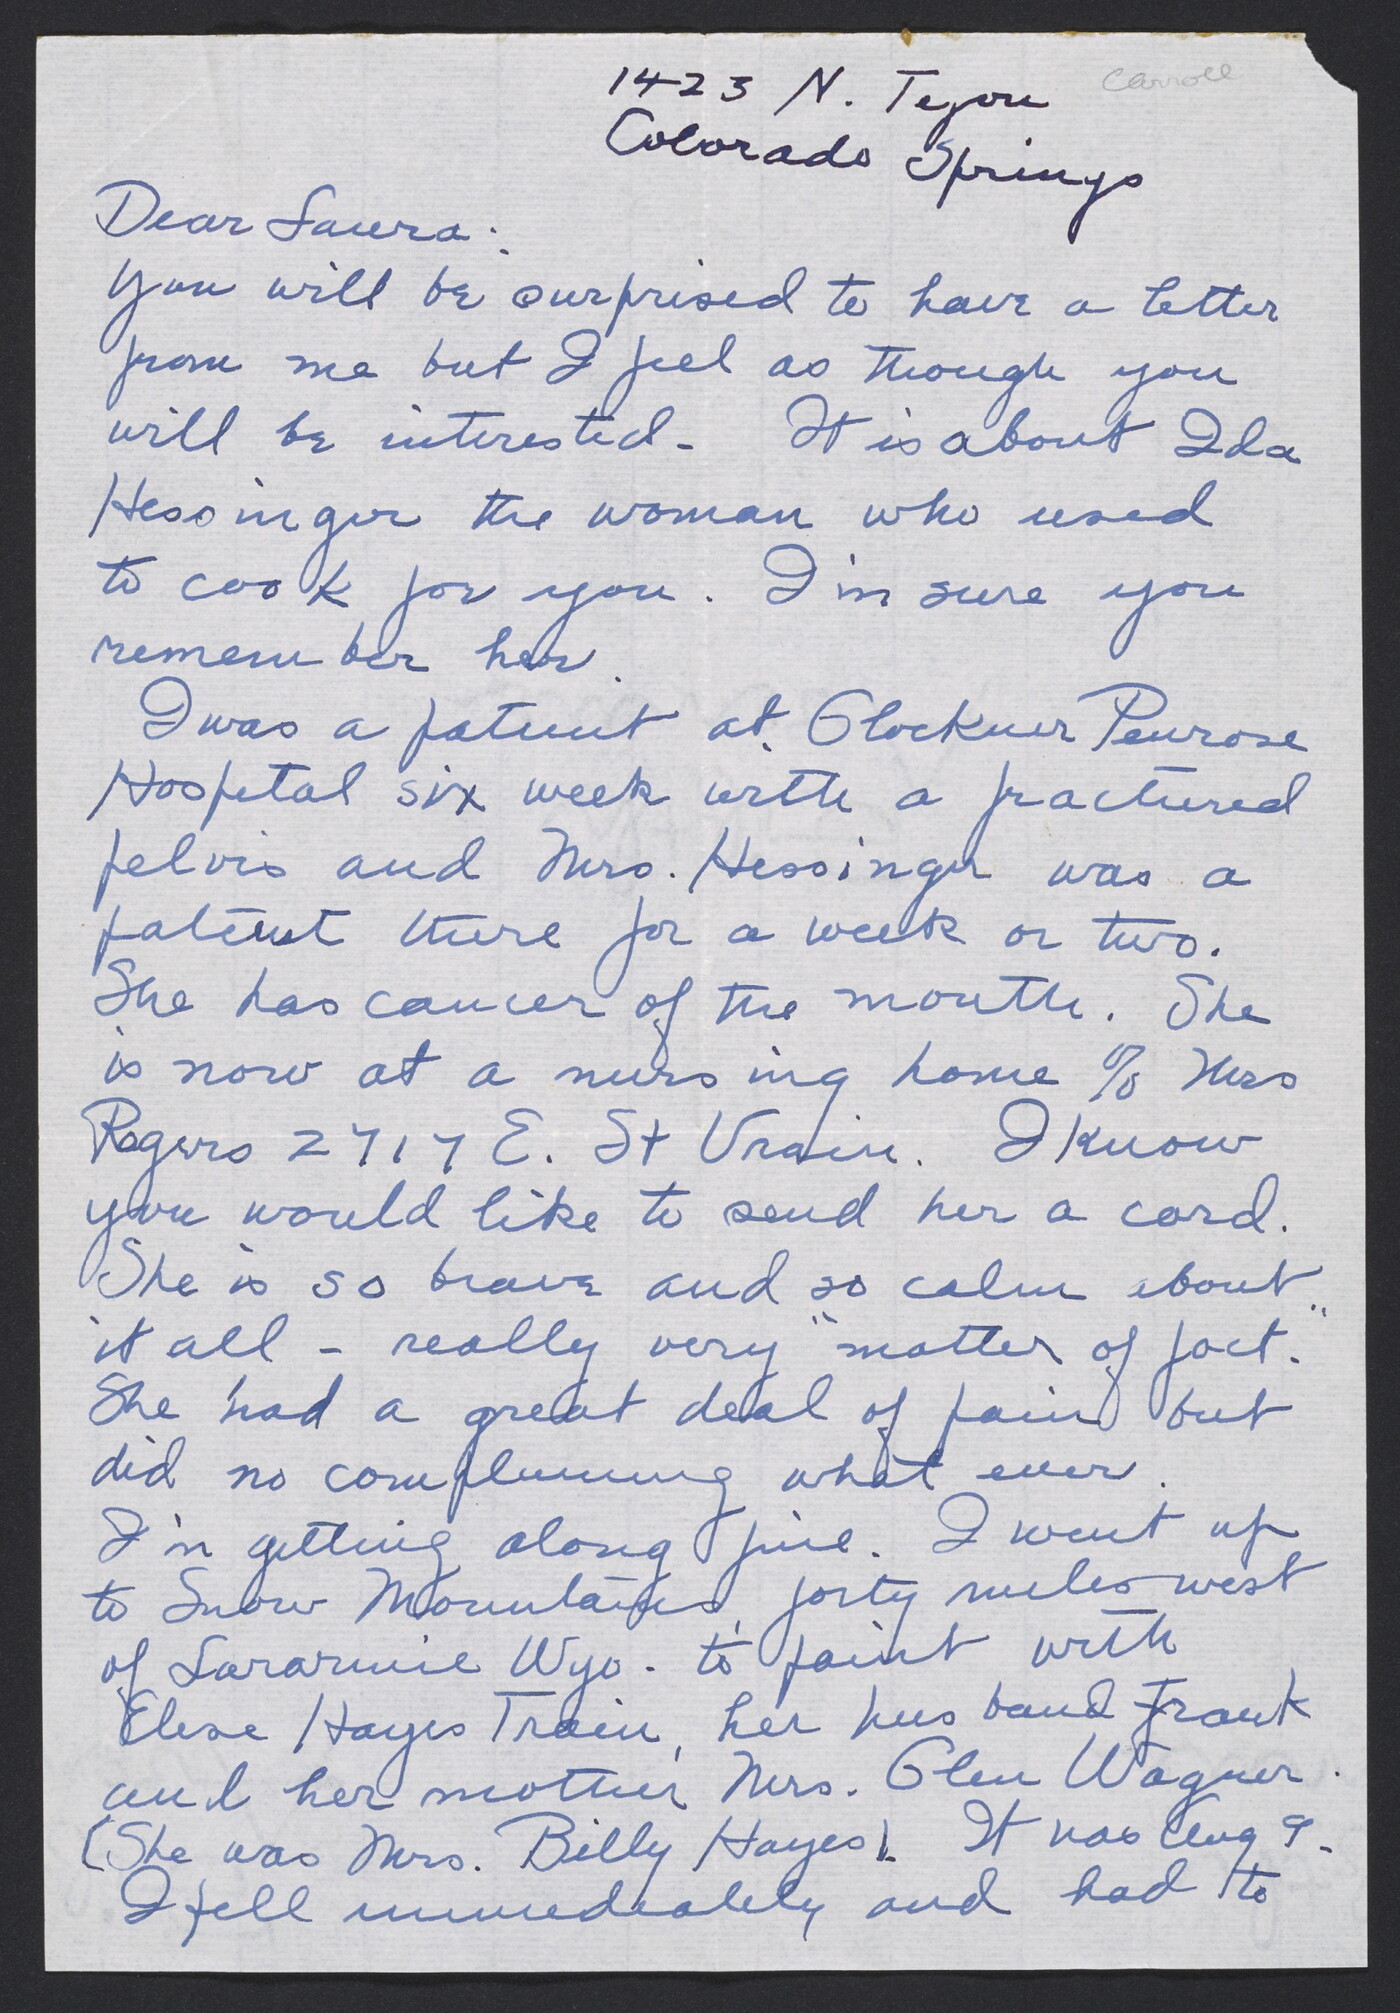 Carroll
1423 N. Tejon
Colorado Springs
Dear Laura:
You will be surprised to have a letter
from me but I feel as though you
will be interested - It is about Ida
Hessinger the woman who used
to cook for you. I'm sure you
remember her.
I was a patient at Glockner Penrose
Hospital six week with a fractured
pelvis and Mrs. Hessinger was a
patient there for a week or two.
She has cancer of the mouth. She
is now at a nursing home % Mrs
Rogers 2717 E. St Vrain. I know
you would like to send her a card.
She is so brave and so calm about
it all - really very "matter of fact."
She had a great deal of pain but
did no complaining what ever.
I'm getting along fine. I went up
to Snow Mountains, forty miles west
of Lararmie Wyo. to paint with
Elese Hayes Train, her husband Frank
and her mother Mrs. Glen Wagner.
(She was Mrs. Billy Hayes). It was Aug 9.
I fell immediately and had to